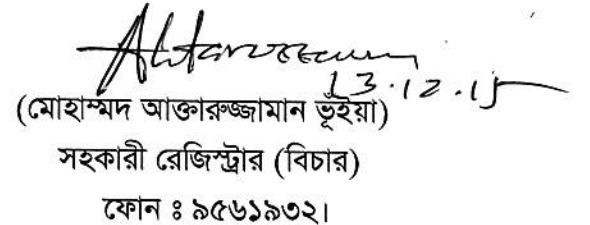 13.12.15
(মোহাম্মদ আক্তারুজ্জামান ভূইয়া)
সহকারী রেজিস্ট্রার (বিচার)
ফোন ঃ ৯৫৬১৯৩২।